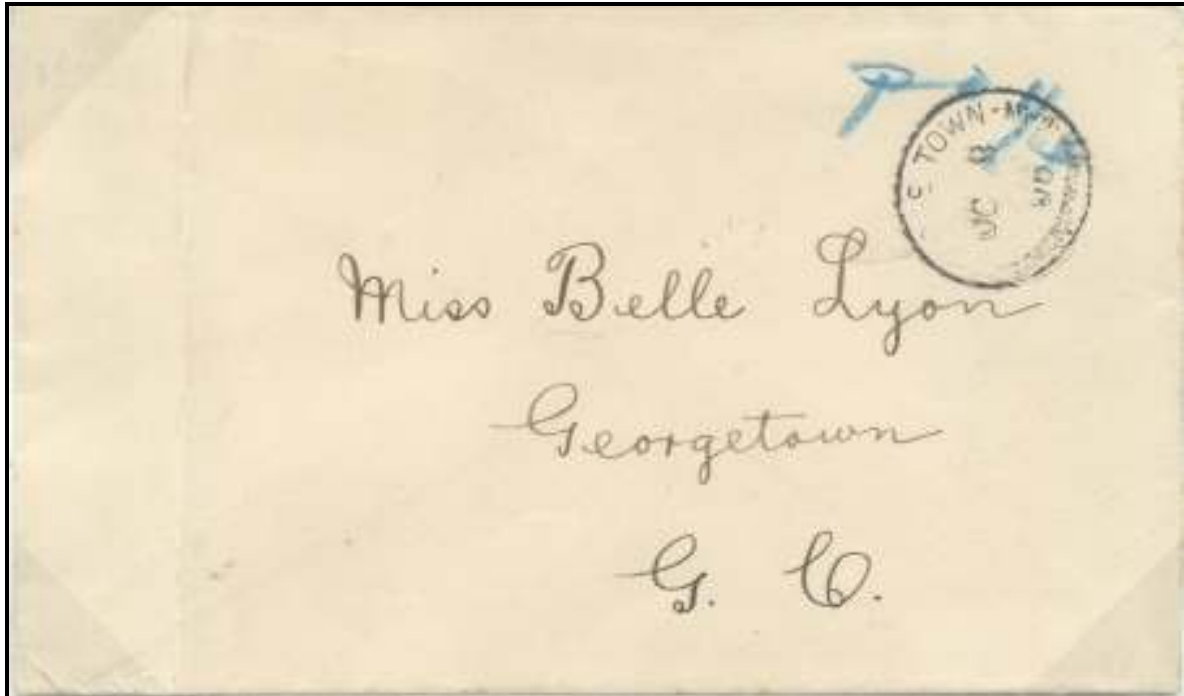 TOWN
JC 8
Miss Belle Lyon
Georgetown
G. C.